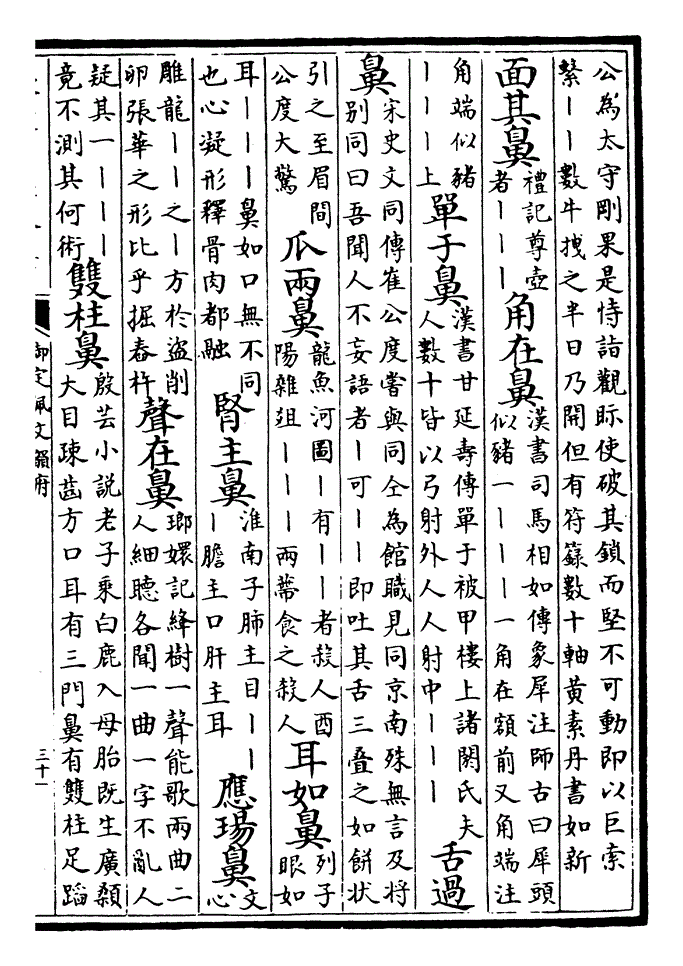 公為太守剛果是恃詣觀眎使破其鎖而堅不可動即以巨索
縶丨丨數牛拽之半日乃開但有符籙數十軸黃素丹書如新
面其鼻
禮記尊壺
者丨丨丨
角在鼻
漢書司馬相如傳象犀注師古曰犀頭
似豬一丨丨丨一角在額前又角端注
角端似豬
丨丨丨上
單于鼻
漢書甘延壽傳單于被甲樓上諸閼氏夫
人數十皆以弓射外人人射中丨丨丨
舌過
鼻
宋史文同傳崔公度嘗與同仝為館職見同京南殊無言及將
別同曰吾聞人不妄語者丨可丨丨即吐其舌三疊之如餅狀
引之至眉間
公度大驚
瓜兩鼻
龍魚河圖丨有丨丨者殺人酉
陽雜俎丨丨丨兩蔕食之殺人
耳如鼻
列子
眼如
耳丨丨丨鼻如口無不同
也心凝形釋骨肉都融
腎主鼻
淮南子肺主目丨丨
丨膽主口肝主耳
應瑒鼻
文
心
雕龍丨丨之丨方於盜削
卵張華之形比乎掘舂杵
聲在鼻
瑯嬛記絳樹一聲能歌兩曲二
人細聽各聞一曲一字不亂人
疑其一丨丨丨
竟不測其何術
雙柱鼻
殷芸小說老子乘白鹿入母胎既生廣顙
大目疎齒方口耳有三門鼻有雙柱足蹈
御定佩文韻府
三十一